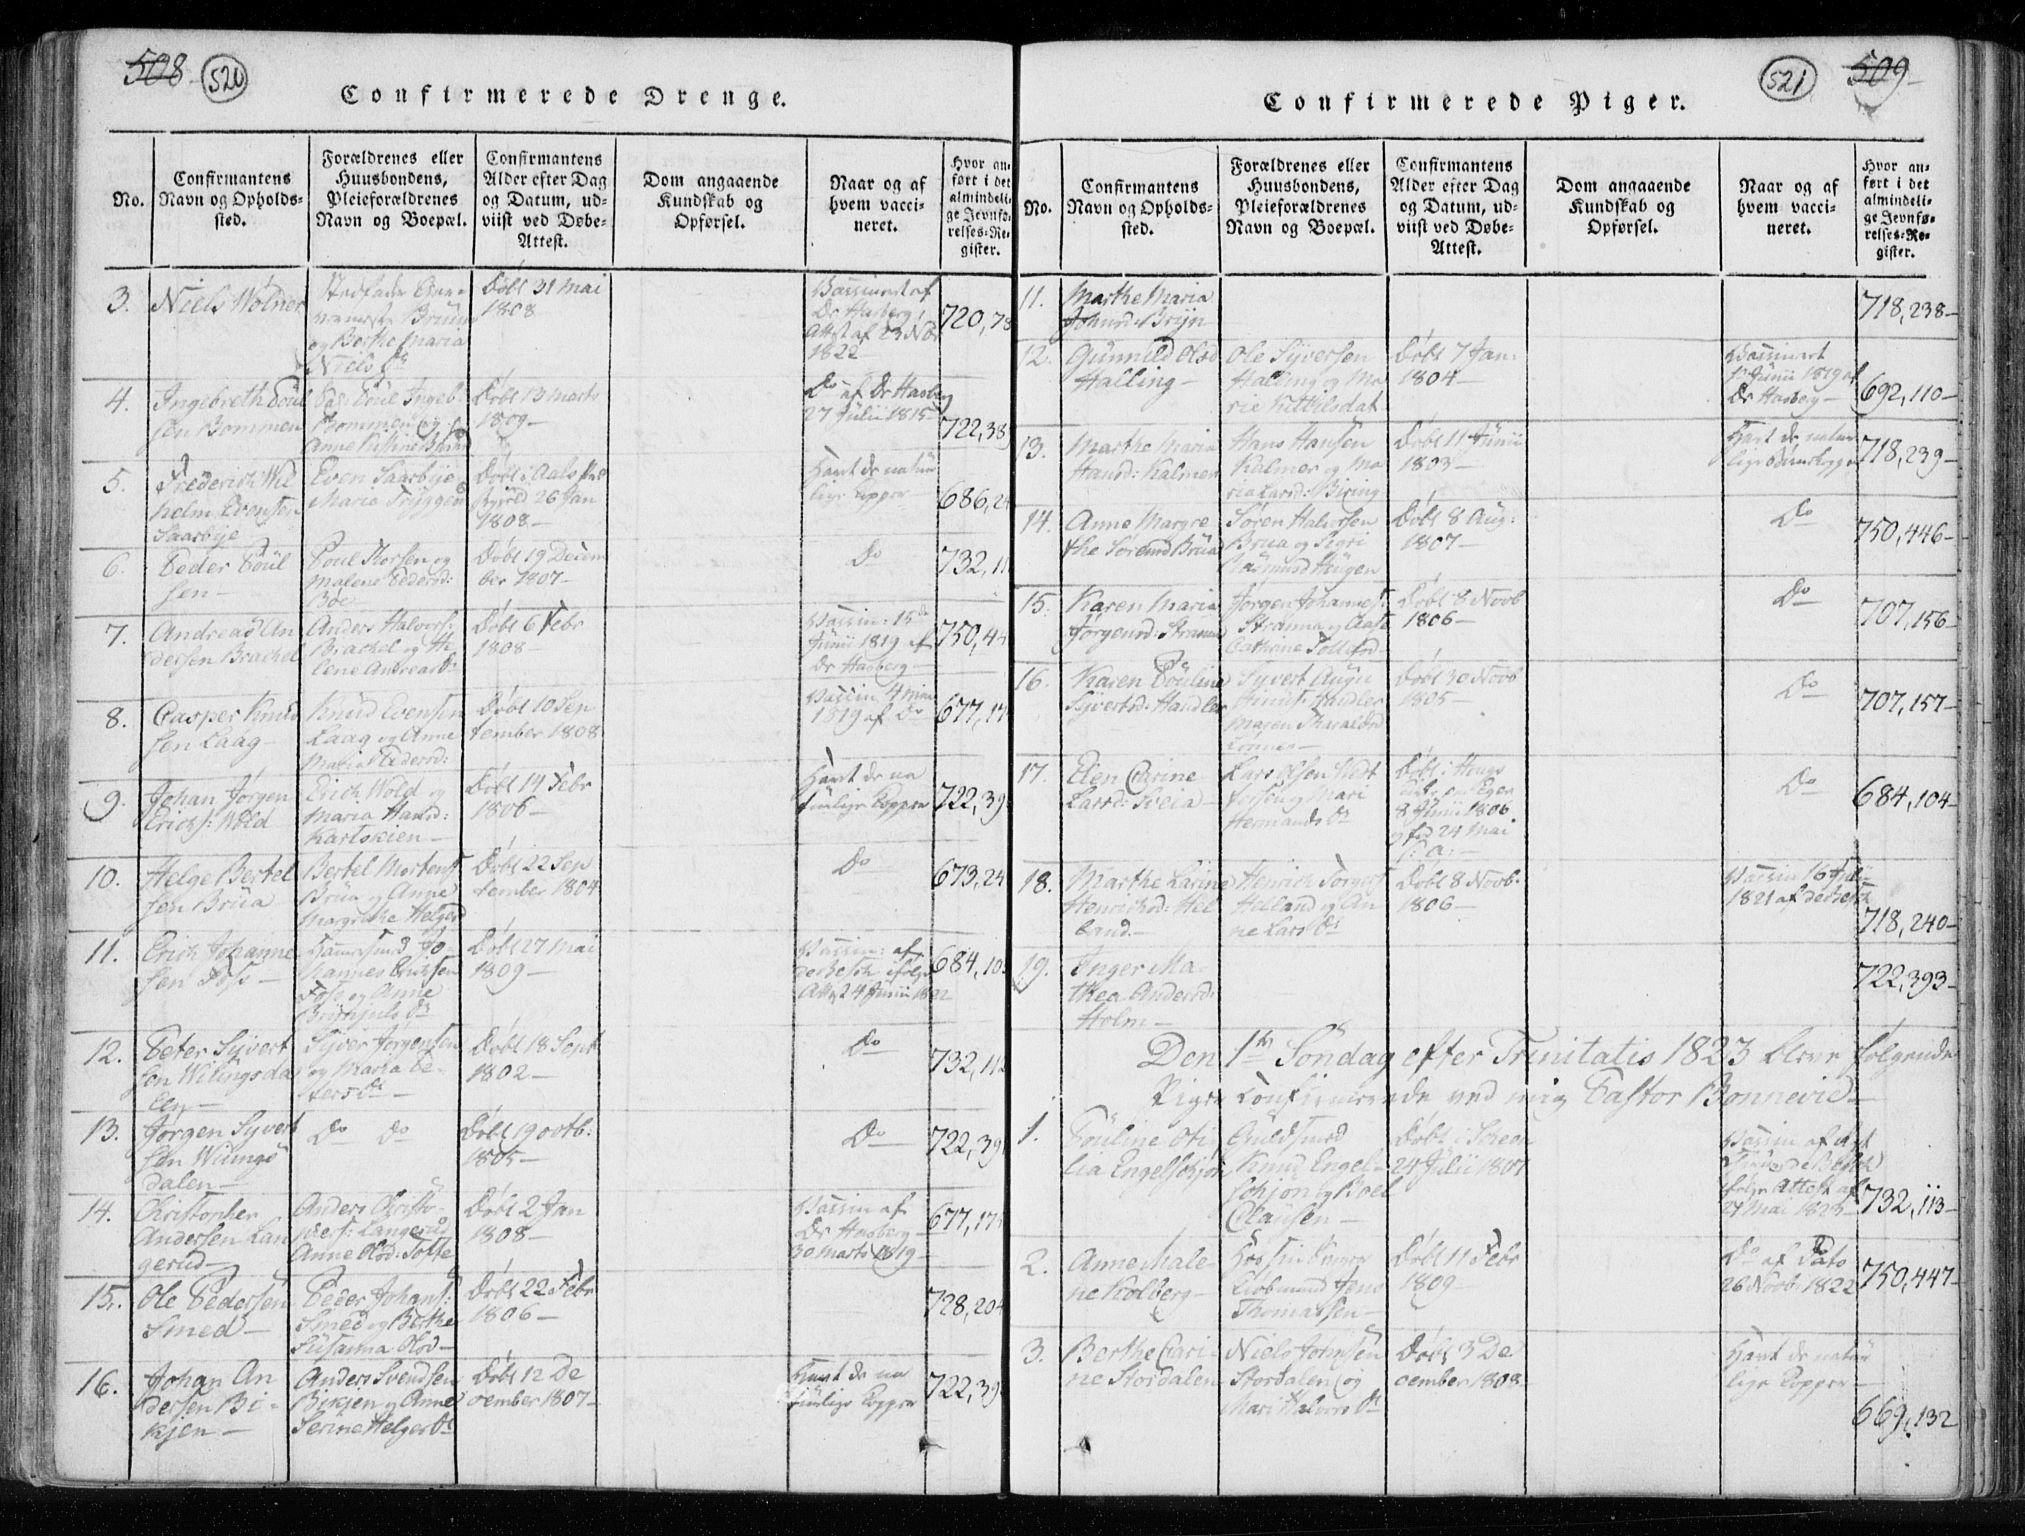 508 520
Confirmerede Drenge.
No.
Confirmantens
Navn og Opholds-
sted.
Forældrenes eller
Huusbondens,
Pleieforældrenes
Navn og Boepæl.
Confirmantens
Alder efter Dag
og Datum, ud-
viist ved Døbe-
Attest.
Dom angaaende
Kundskab og
Opførsel.
Naar og af
hvem vacci-
neret.
Hvor an-
ført i det
almindeli-
ge Jevnfø-
relses-Re-
gister.
3.
Niels Wølner
og Berthe Maria
Niels Dr
Døbt 31 Mai
1808
Vassineret af
Dr Hasberg,
Attest af 23 Nov
1822
720,78
4.
Ingebreth Poul
sen Bommen
Poul Ingeb:
Bommen og
Anne
Døbt 13 Marts
1809-
Do af Dr Hasberg
27 Julii 1815
722,38
5.
Frederich Wil
helm Evensen
Saasbye
Even Saasbye
Maria Tryggen
Døbt i
26 Jan
1808-
Havt de natur
lige Kopper-
686,24
6.
Peder Poul
sen-
Poul Thorsen og
Malene Pedersd:
Bøe
Døbt 19 Decem
ber 1807-
Do
732,11
7.
Andreas An
dersen Brackel
Anders Halvors:
Brackel og He
lene Andreas Dr
Døbt 6 Febr
1808-
Vassin: 15de
Junii 1819 af
Dr Hasberg-
750,44
8.
Casper Knud
sen Laag-
Knud Evensen
Laag og Anne
Maria Pedersd:
Døbt 10 Sep
tember 1808
Vassin 4 Mai
1819 af Do
677,17
9.
Johan Jørgen
Erichs: Wold
Erich Wold og
Maria Hansd:
Døbt 14 Febr
1806-
Havt de na
turlige Kopper
722,39
10.
Helge Bertel
sen Brua
Bertel Mortens
Brua og Anne
Margrethe Helgesd
Døbt 22 Sep
tember 1804
Do
673,24
11.
Erich Johanne
sen Foss-
Jo-
hannes Erichsen
Foss og Anne
Døbt 27 Mai
1809-
Vassin: af
Attest 4 Junii 1822
684,10
12.
Peter Syvert
sen Wilingsda
len-
Syver Jørgensen
og Maria Pe-
ters Dr-
Døbt 18 Sept
1802-
Do
732,112
13.
Jørgen Syvert
sen Wilings
dalen-
Do Do
Døbt 19 octb:
1805-
Do
722,39
14.
Christopher
Andersen Lan
gerud-
Anders Christo-
phers: Langerud
Anne Olsd: Tofte
Døbt 2 Jan
1808-
Vassin af
Dr Hasberg-
30 Marts 1819-
677,17
15.
Ole Pedersen
Smed-
Peder Johans:
Smed og Berthe
Susanna Olsd-
Døbt 22 Febr
1806-
728,204
16.
Johan An
dersen Bi-
kjen-
Anders Svendsen
Bikjen og Anne
Serine Helges Dr
Døbt 12 De
cember 1807-
Havt de na
turlige Kopper
722,39
521 509
Confirmerede Piger.
No.
Confirmantens
Navn og Opholds-
sted.
Forældrenes eller
Huusbondens,
Pleieforældrenes
Navn og Boepæl.
Confirmantens
Alder efter Dag
og Datum, ud-
viist ved Døbe-
Attest.
Dom angaaende
Kundskab og
Opførsel.
Naar og af
hvem vacci-
neret.
Hvor an-
ført i det
almindeli-
ge Jevnfø-
relses-Re-
gister.
11.
Marthe Maria
Johnsd: Bryn
718,238-
12.
Gunnild Olsd
Halling-
Ole Syversen
Halling og Ma
rie Kittilsdat
Døbt 7 Jan:
1804-
Vassineret
Junii 1819 af
Dr Hasberg-
692,110-
13.
Marthe Maria
Hansd: Kalmer
Hans Hansen
Kalmer og Ma
ria Larsd: Biring
Døbt 11 Junii
1803-
Havt de natur
lige
718,239-
14.
Anne Margre
the Sørensd Brua
Søren Halvorsen
Brua og Sigri
Rasmusd Haugen
Døbt 8 Aug:
1807-
Do
750,446-
15.
Karen Maria
Jørgensd: Stranna
Jørgen Johannes:
Stranna og Aase
Cathrine Tollefsd-
Døbt 8 Novb
1806-
Do
707,156-
16.
Karen Pouline
Syvertsd: Handler
Syvert
Handler
Maren Tharaldsd
Døbt 30 Novb
1805-
Do
707,157-
17.
Elen Carine
Larsd: Sveia-
Lars Olsen
og Mari
Hermands Dr
Døbt i Hougs
Eger
8 Junii 1806
24 Mai
s: a:-
Do
684,104-
18.
Marthe Karine
Henrichsd: Hel
land.-
Henrich Torgers
Helland og An
ne Lars Dr
Døbt 8 Novb-
1806-
Vassin 16 Julii
1821 af
718,240-
19.
Inger Ma-
thea Andersd:
Holm-
722,393-
Den 1te Søndag efter Trinitatis 1823 bleve følgende
Piger confirmerede ved mig Pastor Bonnevie-
1.
Pouline Oti
lia Engelschjøn
Guldsmed
Knud Engel-
schjøn og Boel
Clausen-
Døbt i Scheen
24 Julii 1807
Vassin af
ifølge Attest af
21 Mai 1823-
732,113-
2.
Anne Male-
ne Kolberg-
Kiøbmand Jens
Thomassen-
Døbt 11 Febr
1809-
Do af Dato
26 Novb: 1822
750,447-
3.
Berthe Cari-
ne Stordalen
Niels Jørnsen
Stordalen og
Mari Halvors Dr
Døbt 3 De
cember 1808
Havt de natur
lige Kopper-
669,132